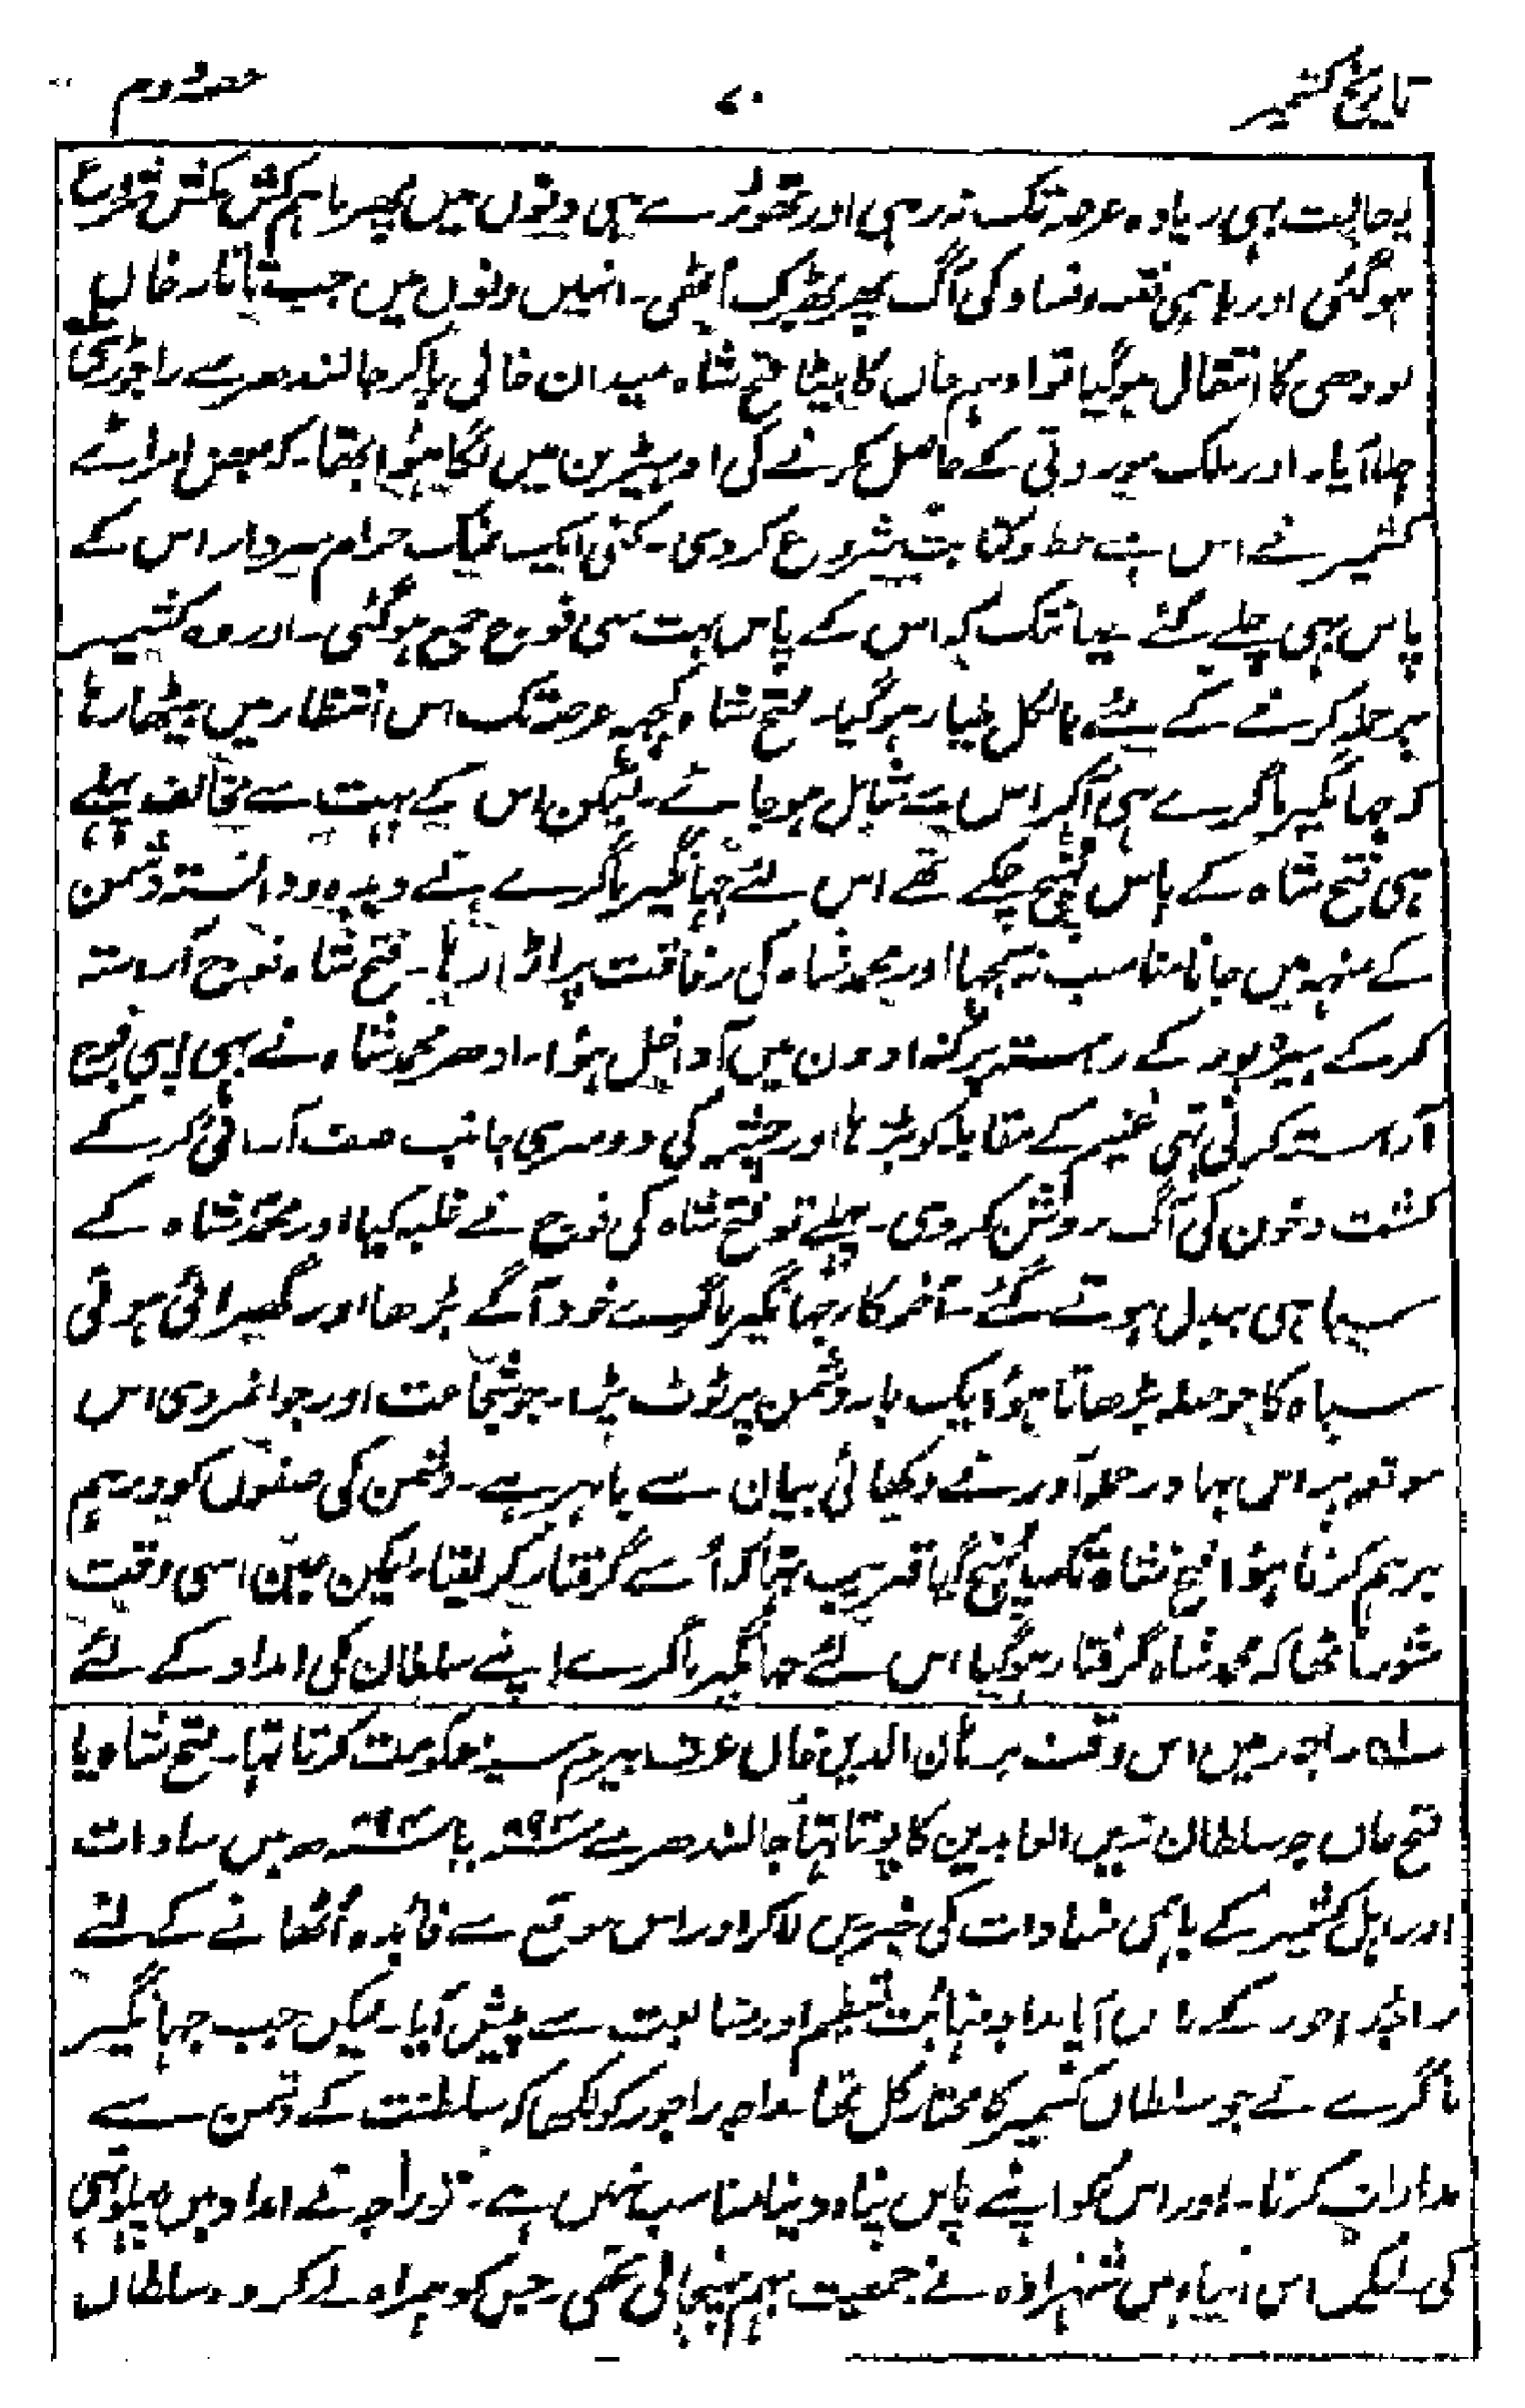 تاریخ کشمیر ۷۰ حصہ دوم
یہ حالت بہی زیادہ عرصہ تک نہ رہی اور تھوڑے ہی دنوں میں پھر باہم کش مکش شروع
ہوگئی اور باہمی فتنہ و فساد کی آگ پھر بھڑک اُٹھی۔ انہیں دنوں میں جب تاتار خاں
لودھی کا انتقال ہوگیا تو ادہم خاں کا بیٹا فتح شاہ میدان خالی پاکر جالندھر سے راجوری
چلا آیا۔ اور ملک موروثی کے حاصل کرنے کی ادہیڑبن میں لگا ہؤا تھا۔ کہ بعض امرائے
کشمیر نے اس سے خط و کتابت شروع کردی۔ کئی ایک نمک حرام سردار اس کے
پاس بہی چلے گئے۔ یہانتک کہ اس کے پاس بہت سی فوج جمع ہوگئی۔ اور وہ کشمیر
پر حملہ کرنے کے لئے بالکل طیار ہوگیا۔ فتح شاہ کچہہ عرصہ تک اس انتظار میں بیٹھا رہا
کہ جہانگیر ماگرے بہی آکر اس سے شامل ہوجائے۔ لیکن اس کے بہت سے مخالف پہلے
ہی فتح شاہ کے پاس پہنچ چکے تھے اس لئے جہانگیر ماگرے نے دیدہ و دانستہ دشمن
کے منہہ میں جانا مناسب نہ سمجہا اور محمد شاہ کی رفاقت پر اڑا رہا۔ فتح شاہ فوج آراستہ
کرکے ہیرہ پور کے رستہ پرگنہ ادون میں آ داخل ہؤا۔ ادھر محمد شاہ نے بہی اپنی فوج
آراستہ کرلی تہی غنیم کے مقابلہ کو بڑہا اور چشمہ کی دوسری جانب صف آرائی کرکے
کشت و خون کی آگ روشن کردی۔ پہلے تو فتح شاہ کی فوج نے غلبہ کیا اور محمد شاہ کے
سپاہی بیدل ہوتے گئے۔ آخرکار جہانگیر ماگرے خود آگے بڑھا اور گھبرائی ہوئی
سپاہ کا حوصلہ بڑھاتا ہؤا یک بار دشمن پر ٹوٹ پڑا۔ جو شجاعت اور جوانمردی اس
موقعہ پر اس بہادر حملہ آور نے دکھائی بیان سے باہر ہے۔ دشمن کی صفوں کو درہم
برہم کرتا ہؤا فتح شاہ تک پہنچ گیا قریب تہا کہ اُسے گرفتار کر لیتا۔ لیکن عین اسی وقت
شور اٹھا کہ محمد شاہ گرفتار ہوگیا اس لئے جہانگیر ماگرے اپنے سلطان کی امداد کے لئے
راجور میں اس وقت برہان الدین خاں عرف حکومت کرتا تہا۔ فتح شاہ یا
فتح خاں جو سلطان زین العابدین کا پوتا تہا جالندھر سے میں سادات
اور اہل کشمیر کے باہمی فسادات کی خبریں اور اس موقع سے فائدہ اُٹھانے کے لئے
راجہ راجور کے پاس آیا راجہ نہائت تعظیم اور سے پیش آیا۔ لیکن جب جہانگیر
ماگرے نے جو سلطان کشمیر کا مختار کل تھا راجہ راجور کو لکھا کہ سلطنت کے دشمن سے
مدارات کرنا۔ اور اس کو اپنے پاس پناہ دینا مناسب نہیں ہے۔ تو راجہ نے امداد میں پہلوتہی
کی۔ لیکن اس اثناء میں شہزادہ نے جمعیت بہم پہنچالی تھی۔ جس کو ہمراہ لے کر وہ سلطان